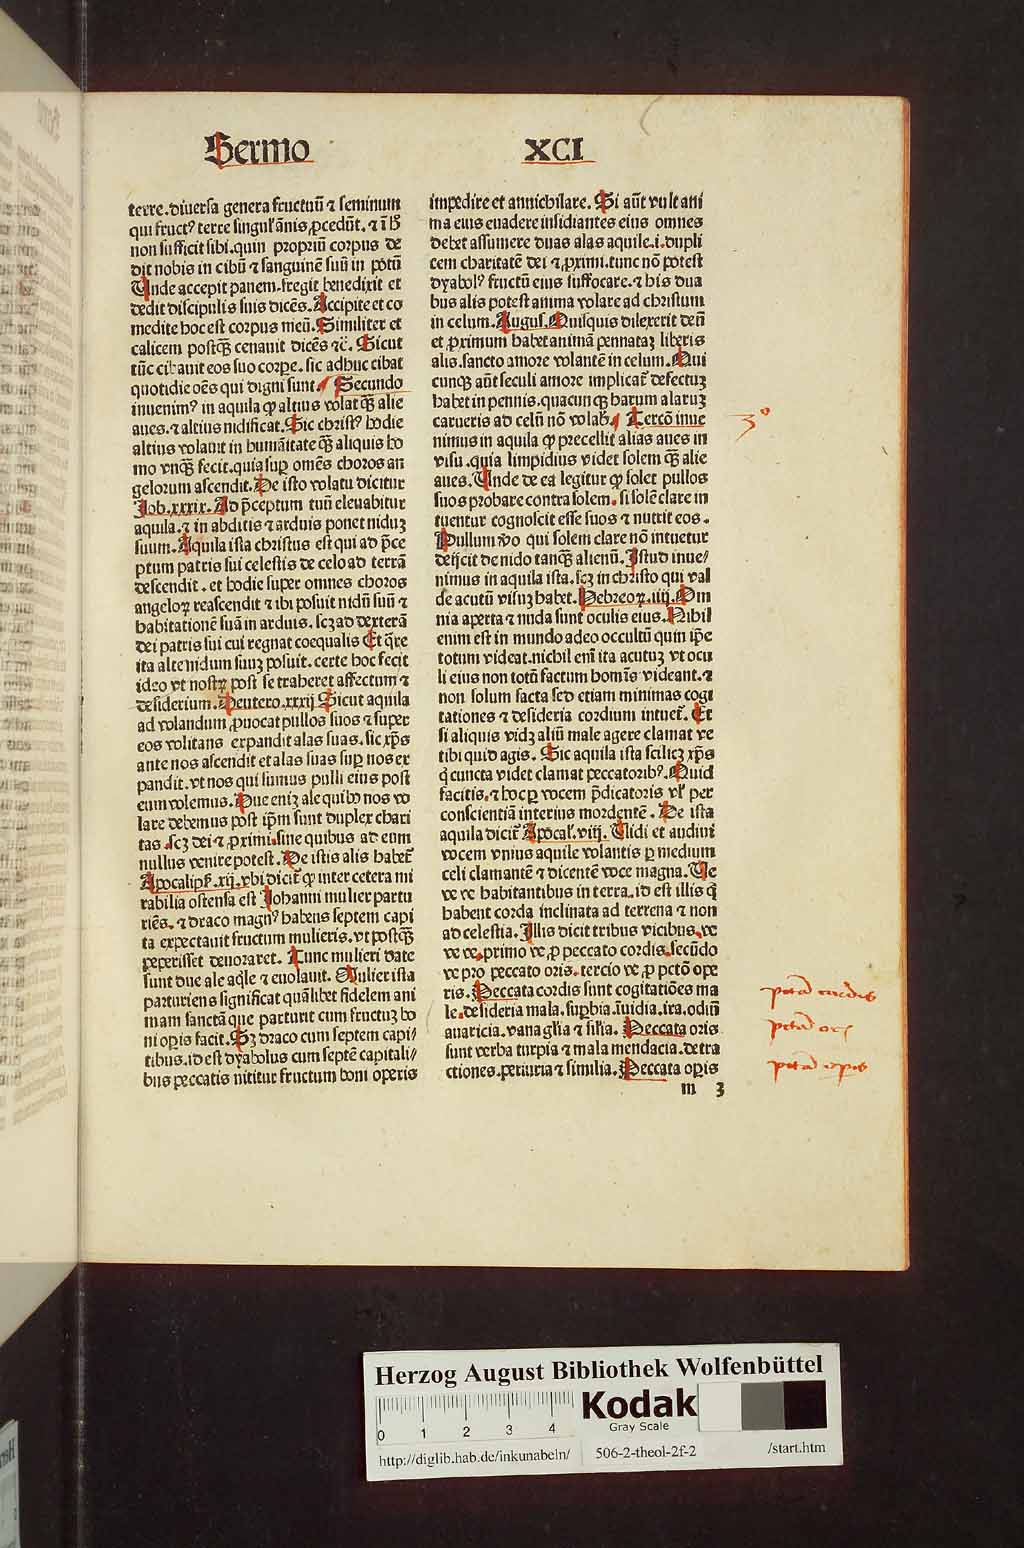 Sermo XCI
terre.diuersa genera fructuū ⁊ seminum
qui fructꝰ terre singulʼānis ꝓcedūt.⁊ ī hͦ
non sufficit sibi.quin propriū corpus de
dit nobis in cibū ⁊ sanguinē suū in potū
Unde accepit panem.fregit benedixit et
dedit discipulis suis dicēs.Accipite et co
medite hoc est corpus meū.Similiter et
calicem postqͣꝫ cenauit dicēs ⁊c̄.Sicut
tūc cibauit eos suo corꝑe.sic adhuc cibat
quotidie oēs qui digni sunt.Secundo
inuenimꝰ in aquila ꝙ altius volat qͣꝫ alie
aues.⁊ altius nidificat.Sic christꝰ hodie
altius volauit in humāitate qͣꝫ aliquis ho
mo vnqͣꝫ fecit.quia suꝑ omēs choros an
gelorum ascendit.De isto volatu dicitur
Job.xxxix.Ad p̄ceptum tuū eleuabitur
aquila.⁊ in abditis ⁊ arduis ponet niduꝫ
suum.Aquila ista christus est qui ad p̄ce
ptum patris sui celestis de celo ad terrā
descendit.et hodie super omnes choros
angeloꝝ reascendit ⁊ ibi posuit nidū suū ⁊
habitationē suā in arduis.scꝫ ad dexterā
dei patris sui cui regnat coequalis Et qͣre
ita alte nidum suuꝫ posuit.certe hoc fecit
ideo vt nostꝝ post se traheret affectum ⁊
desiderium.Deutero.xxxij Sicut aquila
ad volandum ꝓuocat pullos suos ⁊ super
eos volitans expandit alas suas.sic xp̄s
ante nos ascendit et alas suas suꝑ nos ex
pandit.vt nos qui sumus pulli eius post
eum volemus.Due eniꝫ ale quibꝰ nos vo
lare debemus post ip̄m sunt duplex chari
tas.scꝫ dei ⁊ ꝓximi.sine quibus ad eum
nullus venire potest.De istis alis habet̄
Apocalipſ.xij.vbi dicit̄ ꝙ inter cetera mi
rabilia ostensa est Johanni mulier partu
riēs.⁊ draco magnꝰ habens septem capi
ta expectauit fructum mulieris.vt postqͣꝫ
peperisset deuoraret.Tunc mulieri date
sunt due ale aqͥle ⁊ euolauit.Mulier ista
parturiens significat quālibet fidelem ani
mam sanctā que parturit cum fructuꝫ bo
ni oꝑis facit.Sꝫ draco cum septem capi⸗
tibus.id est dyabolus cum septē capitali⸗
bus peccatis nititur fructum boni operis
impedire et annichilare.Si aūt vult ani
ma eius euadere insidiantes eius omnes
debet assumere duas alas aquile.i.dupli
cem charitatē dei ⁊ ꝓximi.tunc nō potest
dyabolꝰ fructū eius suffocare.⁊ his dua
bus alis potest anima volare ad christum
in celum.Augus.Quisquis dilexerit deū
et ꝓximum habet animā pennataꝫ liberis
alis.sancto amore volantē in celum.Qui
cunqꝫ aūt seculi amore implicat̄ defectuꝫ
habet in pennis.quacunqꝫ harum alaruꝫ
carueris ad celū nō volab̄. Terciō inue
nimus in aquila ꝙ precellit alias aues in
visu.quia limpidius videt solem qͣꝫ alie
aues.Unde de ea legitur ꝙ solet pullos
suos probare contra solem.si solē clare in
tuentur cognoscit esse suos ⁊ nutrit eos.
Pullum v̄o qui solem clare nō intuetur
deijcit de nido tanqͣꝫ alienū.Istud inue⸗
nimus in aquila ista.scꝫ in christo qui val
de acutū visuꝫ habet.Hebreoꝝ.iiij.Om
nia aperta ⁊ nuda sunt oculis eius.Nihil
enim est in mundo adeo occultū quin ip̄e
totum videat.nichil enī ita acutuꝫ vt ocu
li eius non totū factum homīs videant.⁊
non solum facta sed etiam minimas cogi
tationes ⁊ desideria cordium intuet̄.Et
si aliquis vidꝫ aliū male agere clamat ve
tibi quid agis.Sic aquila ista scilicꝫ xp̄s
q̇ cuncta videt clamat peccatoribꝰ.Quid
facitis.⁊ hoc ꝑ vocem p̄dicatoris vlʼ per
conscientiā interius mordentē.De ista
aquila dicit̄ Apocalʼ.viij.Uidi et audiui
vocem vnius aquile volantis ꝑ medium
celi clamantē ⁊ dicentē voce magna.Ue
ve ve habitantibus in terra.id est illis q̇
habent corda inclinata ad terrena ⁊ non
ad celestia.Illis dicit tribus vicibus.ve
ve ve.primo ve ꝓ peccato cordis.secūdo
ve pro peccato oris.tercio ve ꝓ pctō ope
ris.Peccata cordis sunt cogitatiōes ma
le.desideria mala.suꝑbia.īuidia.ira.odiū
auaricia.vana glīa ⁊ silīa.Peccata oris
sunt verba turpia ⁊ mala mendacia.detra
ctiones.periuria ⁊ similia.Peccata oꝑis
m 3
3º
pctā cordis
pctā oris
pctā operis
Herzog August Bibliothek Wolfenbüttel
0 1 2 3 4
Kodak
Gray Scale
http://diglib.hab.de/inkunabeln/ 506-2-theol-2f-2 /start.htm